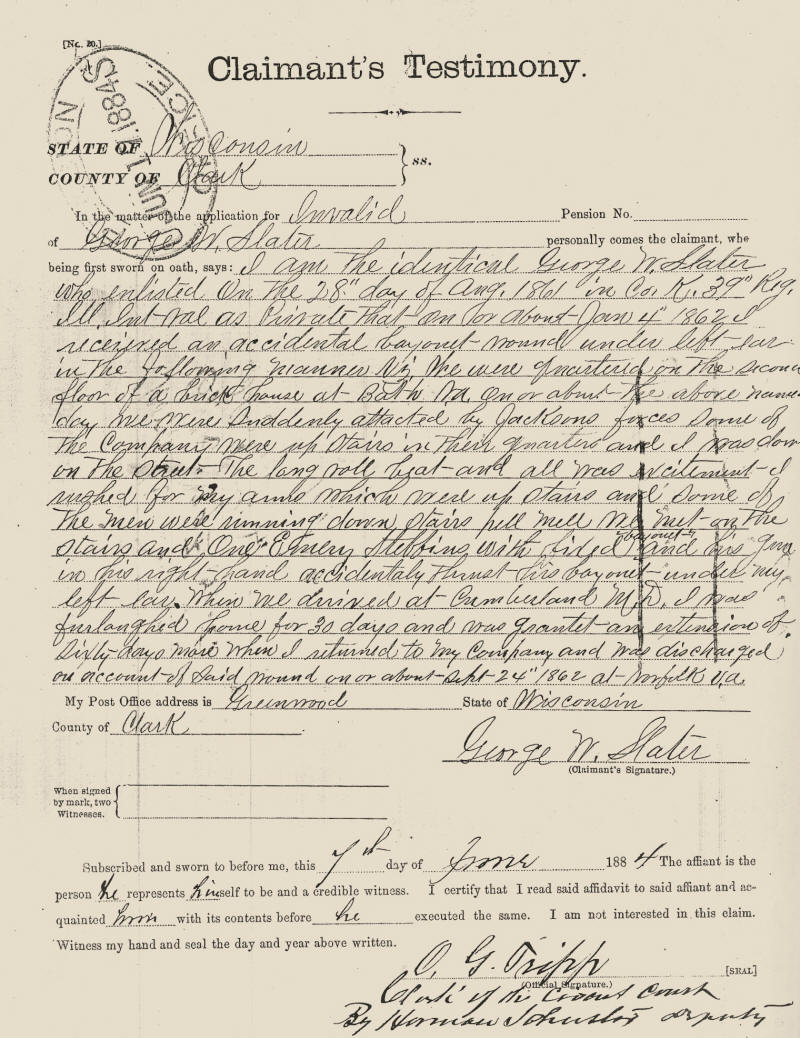 [No. 20.]
Claimant's Testimony.
STATE OF Wisconsin
COUNTY OF Clark } ss.
In the matter of the application for Invalid Pension No.
of George W. Slater personally comes the claimant, who
being first sworn on oath, says: I am the identical George W. Slater
who enlisted on the 28" day of Aug. 1861 in Co. K. 39" Reg.
Ill. Inf. Vol as Private That on or about Jan 4" 1862 I
received an accidental bayonet wound under left ear
in the following manner Viz We were quartered on the second
floor of a brick house at Bath Va. on or about the above name
day we were suddenly attacted by Jacksons forces some of
the Company were up stairs in their quarters and I was down
on the street The long roll beat and all was excitement I
rushed for my arms which were up stairs and some of
the men were running down stairs pell mell We met on the
stairs and One Emery Stebbins with fixed bayonet and his gun
in his right hand accidentaly thrust his bayonet under my
left ear. When we arrived at Cumberland M.D. I was
furloughed home for 30 days and was grantet an extension of
sixty days more when I returned to my Company and was discharged
on account of said wound on or about Sept 24" 1862 at Norfolk Va.
My Post Office address is Greenwood State of Wisconsin
County of Clark.
George W. Slater
(Claimant's Signature.)
When signed
by mark, two
Witnesses.
Subscribed and sworn to before me, this 7th day of June 1884 The affiant is the
person he represents himself to be and a credible witness. I certify that I read said affidavit to said affiant and ac-
quainted him with its contents before he executed the same. I am not interested in this claim.
Witness my hand and seal the day and year above written.
O. G. Tripp [SEAL]
(Official Signature.)
Clerk of the Circuit Court
By Herman deputy